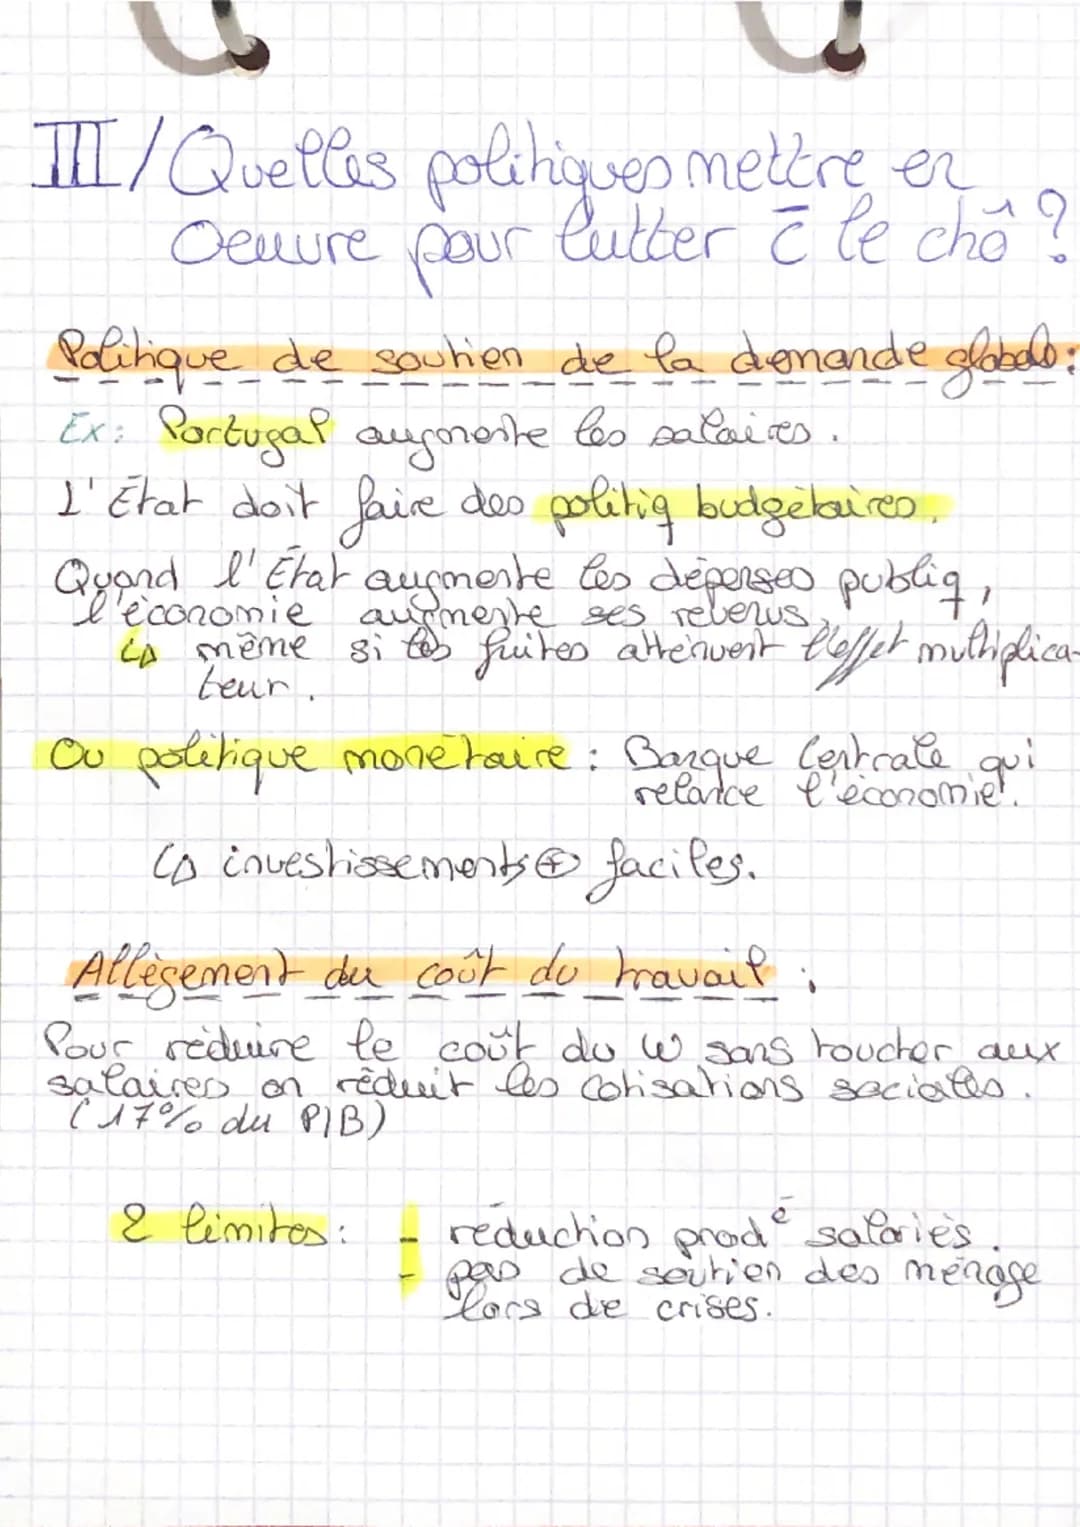 III/ Quelles politiques mettre en
Oeuvre pour lutter c̄ le chô ?
Politique de soutien de la demande globale :
Ex : Portugal augmente les salaires .
L'État doit faire des politiq budgétaires.
Quand l'État augmente les dépenses publiq ,
l'économie augmente ses revenus,
↳ même si les fuites atténuent l'effet multiplica-
teur .
Ou politique monétaire : Banque Centrale qui
relance l'économie.
↳ investissements ⊕ faciles.
Allègement du coût du travail :
Pour réduire le coût du W sans toucher aux
salaires on réduit les cotisations sociales .
(17% du PIB)
2 limites : - réduction prodᵉ́ salariés .
- pas de soutien des ménage
lors de crises.